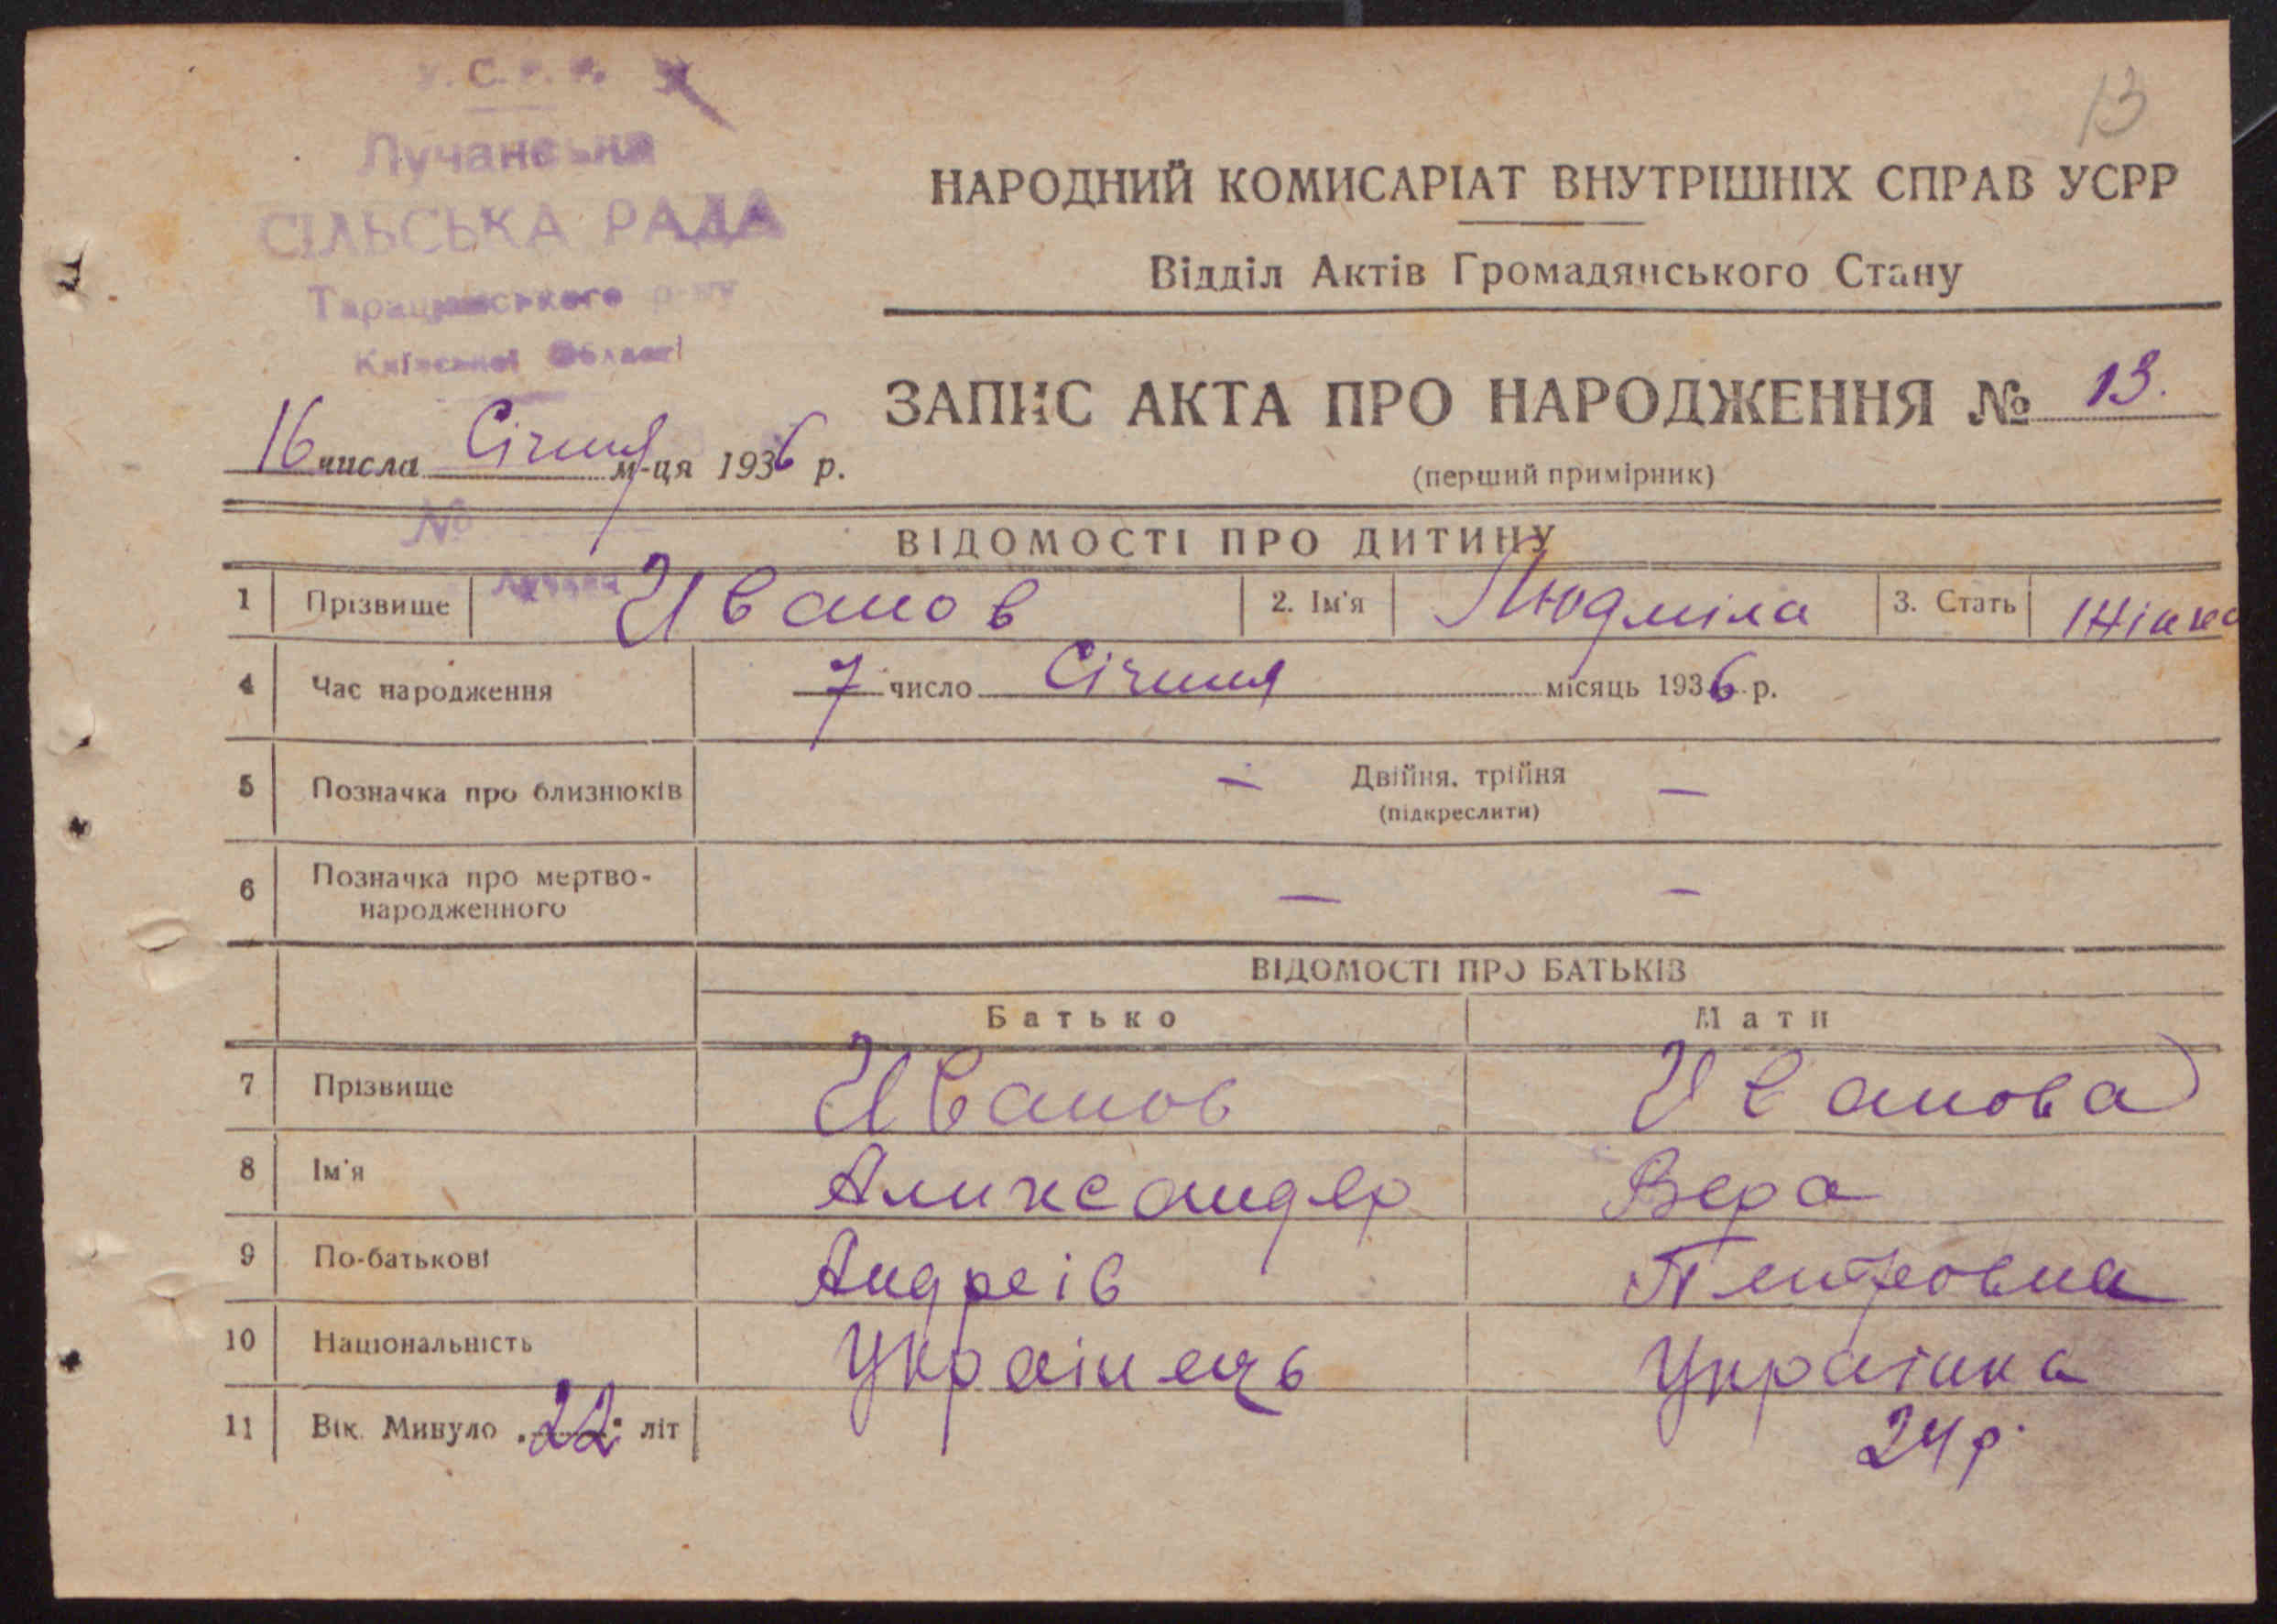 У. С. Р. Р.
13
Лучанська
СІЛЬСЬКА РАДА
Таращанського р-ну
Київської Області
НАРОДНИЙ КОМИСАРІАТ ВНУТРІШНІХ СПРАВ УСРР
Відділ Актів Громадянського Стану
ЗАПИС АКТА ПРО НАРОДЖЕННЯ № 13.
(перший примірник)
16 числа Січня м-ця 1936 р.
№
ВІДОМОСТІ ПРО ДИТИНУ
1 Прізвище Иванов 2. Ім'я Людміла 3. Стать Жінка
4 Час народження 7 число Січня місяць 1936 р.
5 Позначка про близнюків — Двійня, трійня —
(підкреслити)
6 Позначка про мертво-
народженного — —
ВІДОМОСТІ ПРО БАТЬКІВ
Батько Мати
7 Прізвище Иванов Иванова
8 Ім'я Александер Вера
9 По-батькові Андреів Петровна
10 Національність Українець Українка
11 Вік. Минуло 22 літ 24 р.